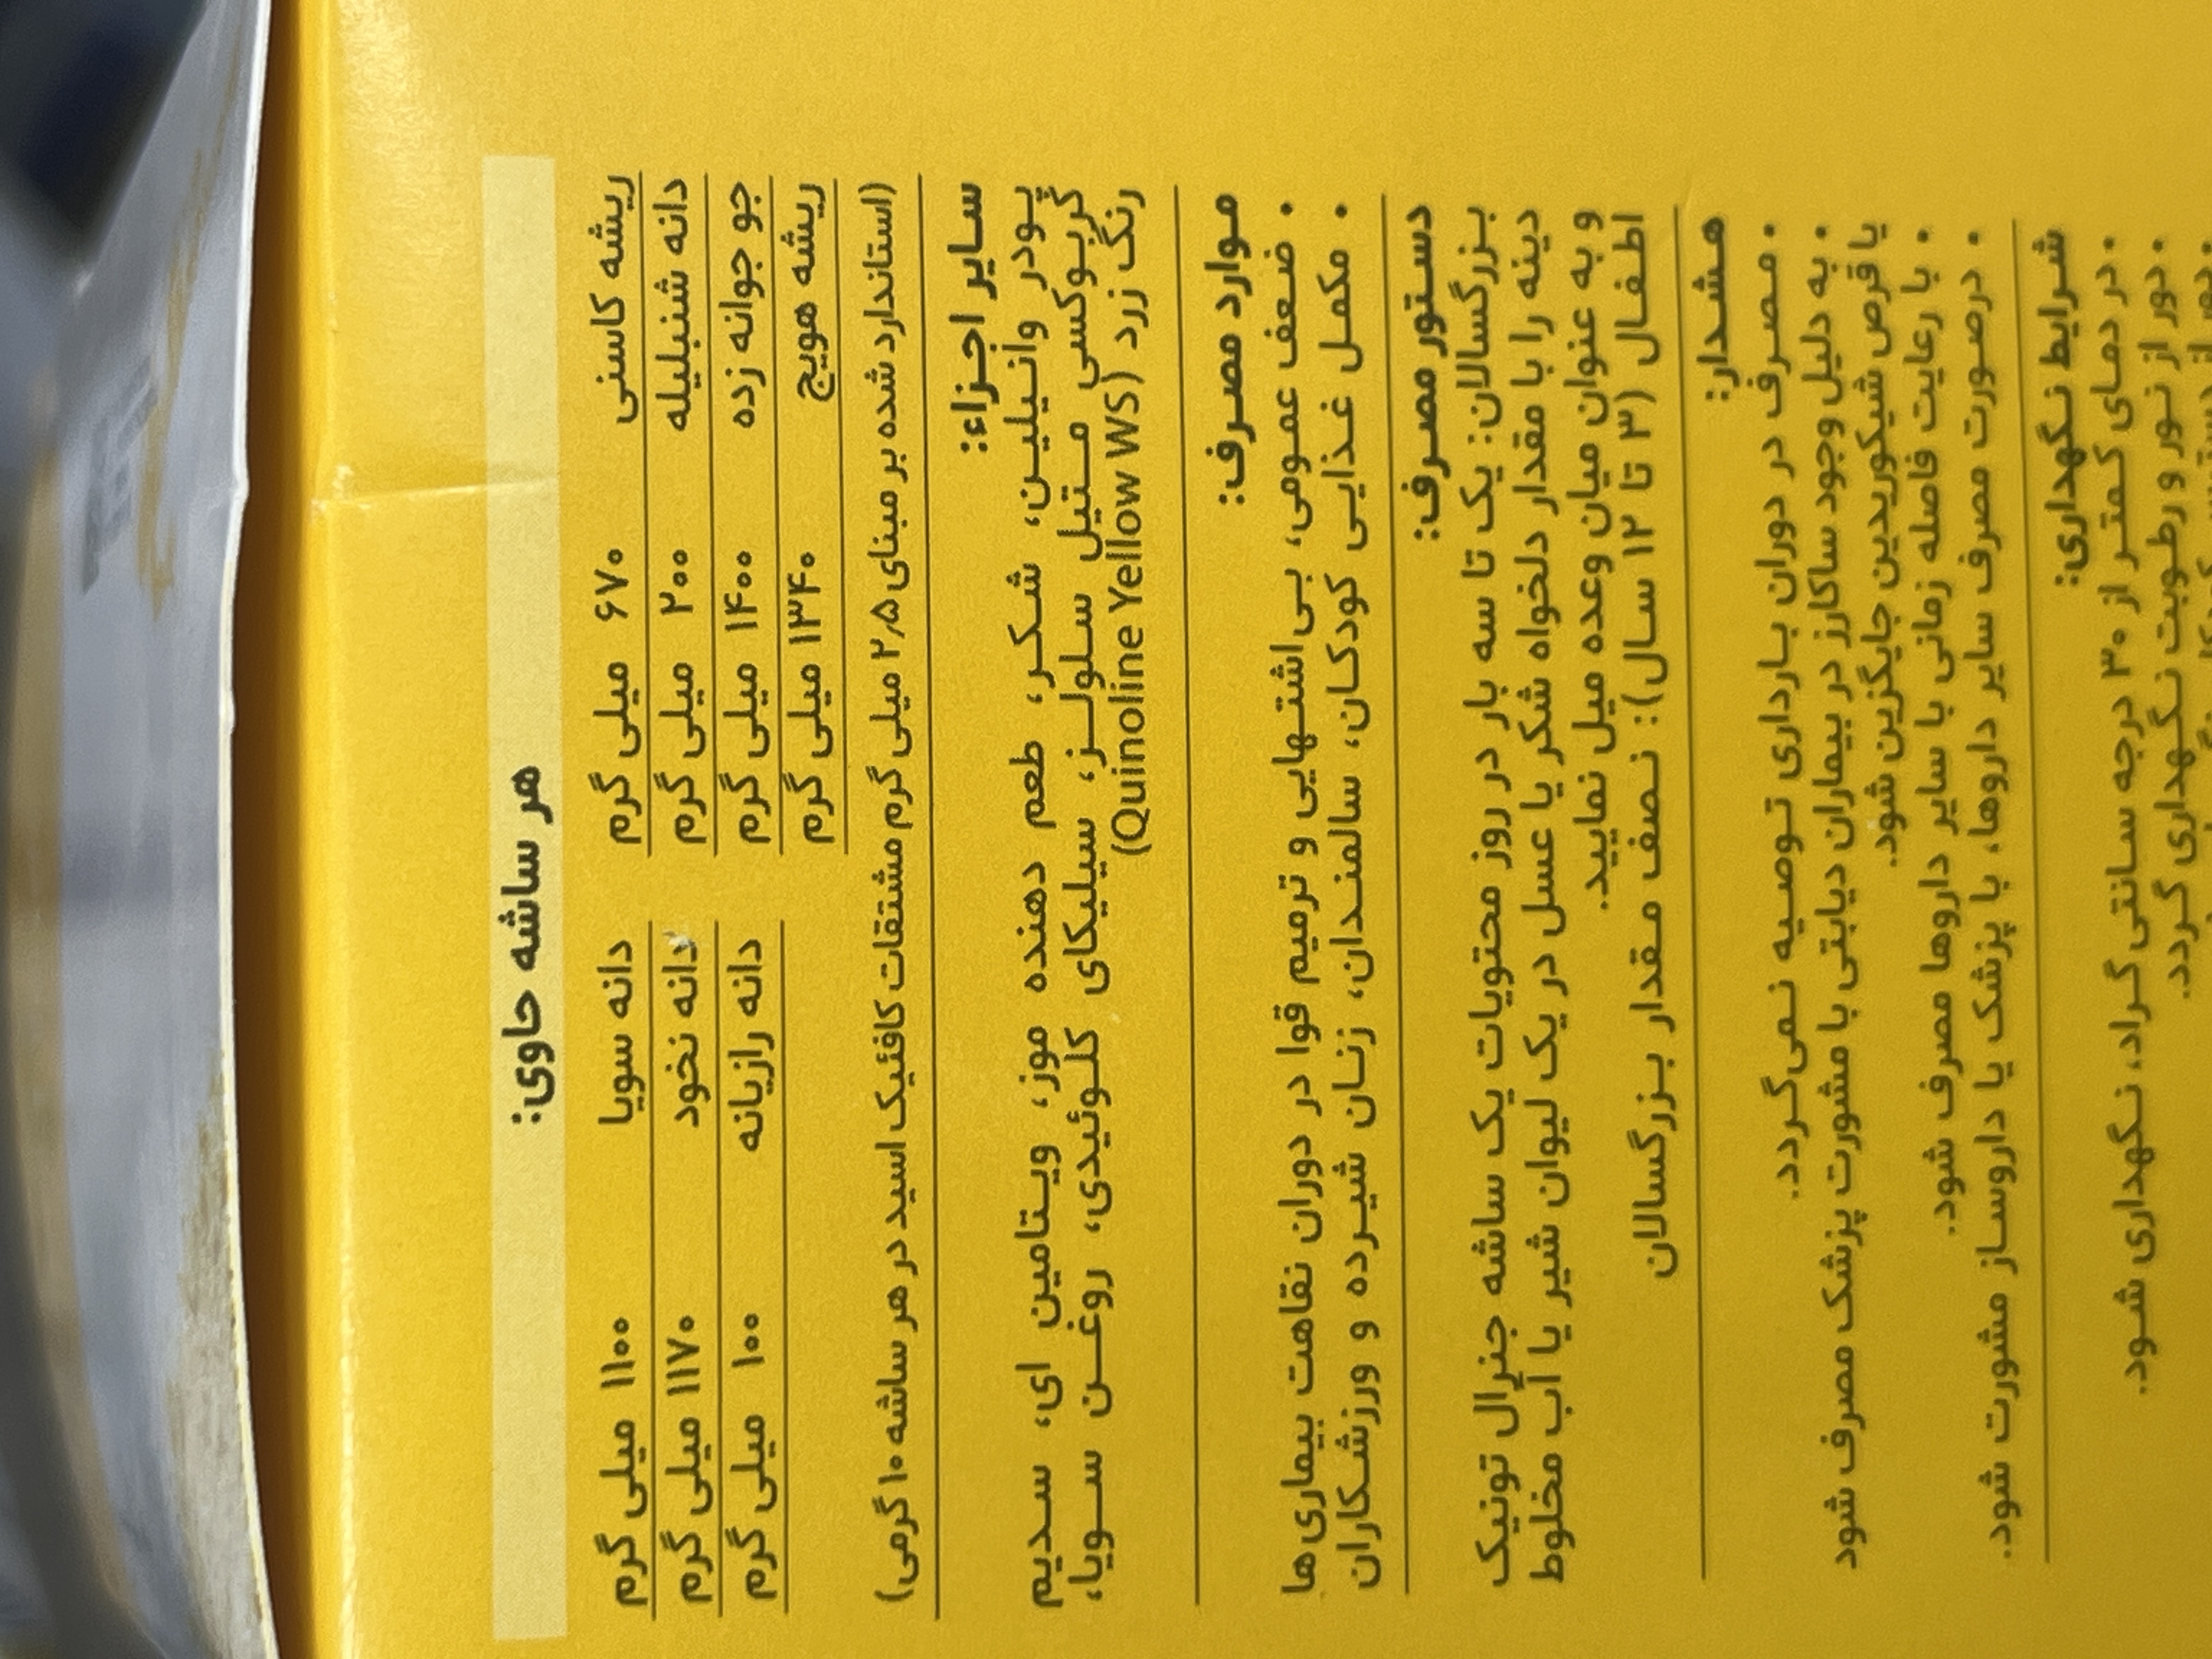 هر ساشه حاوی:
ریشه کاسنی ۶۷۰ میلی گرم دانه سویا ۱۱۰۰ میلی گرم
دانه شنبلیله ۲۰۰ میلی گرم دانه نخود ۱۱۷۰ میلی گرم
جو جوانه زده ۱۴۰۰ میلی گرم دانه رازیانه ۱۰۰ میلی گرم
ریشه هویج ۱۳۴۰ میلی گرم
(استاندارد شده بر مبنای ۲٫۵ میلی گرم مشتقات کافئیک اسید در هر ساشه ۱۰ گرمی)
سایر اجزاء:
پودر وانیلین، شکر، طعم دهنده موز، ویتامین ای، سدیم
کربوکسی متیل سلولز، سیلیکای کلوئیدی، روغن سویا،
رنگ زرد (Quinoline Yellow WS)
موارد مصرف:
• ضعف عمومی، بی‌اشتهایی و ترمیم قوا در دوران نقاهت بیماری‌ها
• مکمل غذایی کودکان، سالمندان، زنان شیرده و ورزشکاران
دستور مصرف:
بزرگسالان: یک تا سه بار در روز محتویات یک ساشه جنرال تونیک
دینه را با مقدار دلخواه شکر یا عسل در یک لیوان شیر یا آب مخلوط
و به عنوان میان وعده میل نمایید.
اطفال (۳ تا ۱۲ سال): نصف مقدار بزرگسالان
هشدار:
• مصرف در دوران بارداری توصیه نمی‌گردد.
• به دلیل وجود ساکارز در بیماران دیابتی با مشورت پزشک مصرف شود
یا قرص شیکوریدین جایگزین شود.
• با رعایت فاصله زمانی با سایر داروها مصرف شود.
• درصورت مصرف سایر داروها، با پزشک یا داروساز مشورت شود.
شرایط نگهداری:
• در دمای کمتر از ۳۰ درجه سانتی گراد، نگهداری شود.
• دور از نور و رطوبت نگهداری گردد.